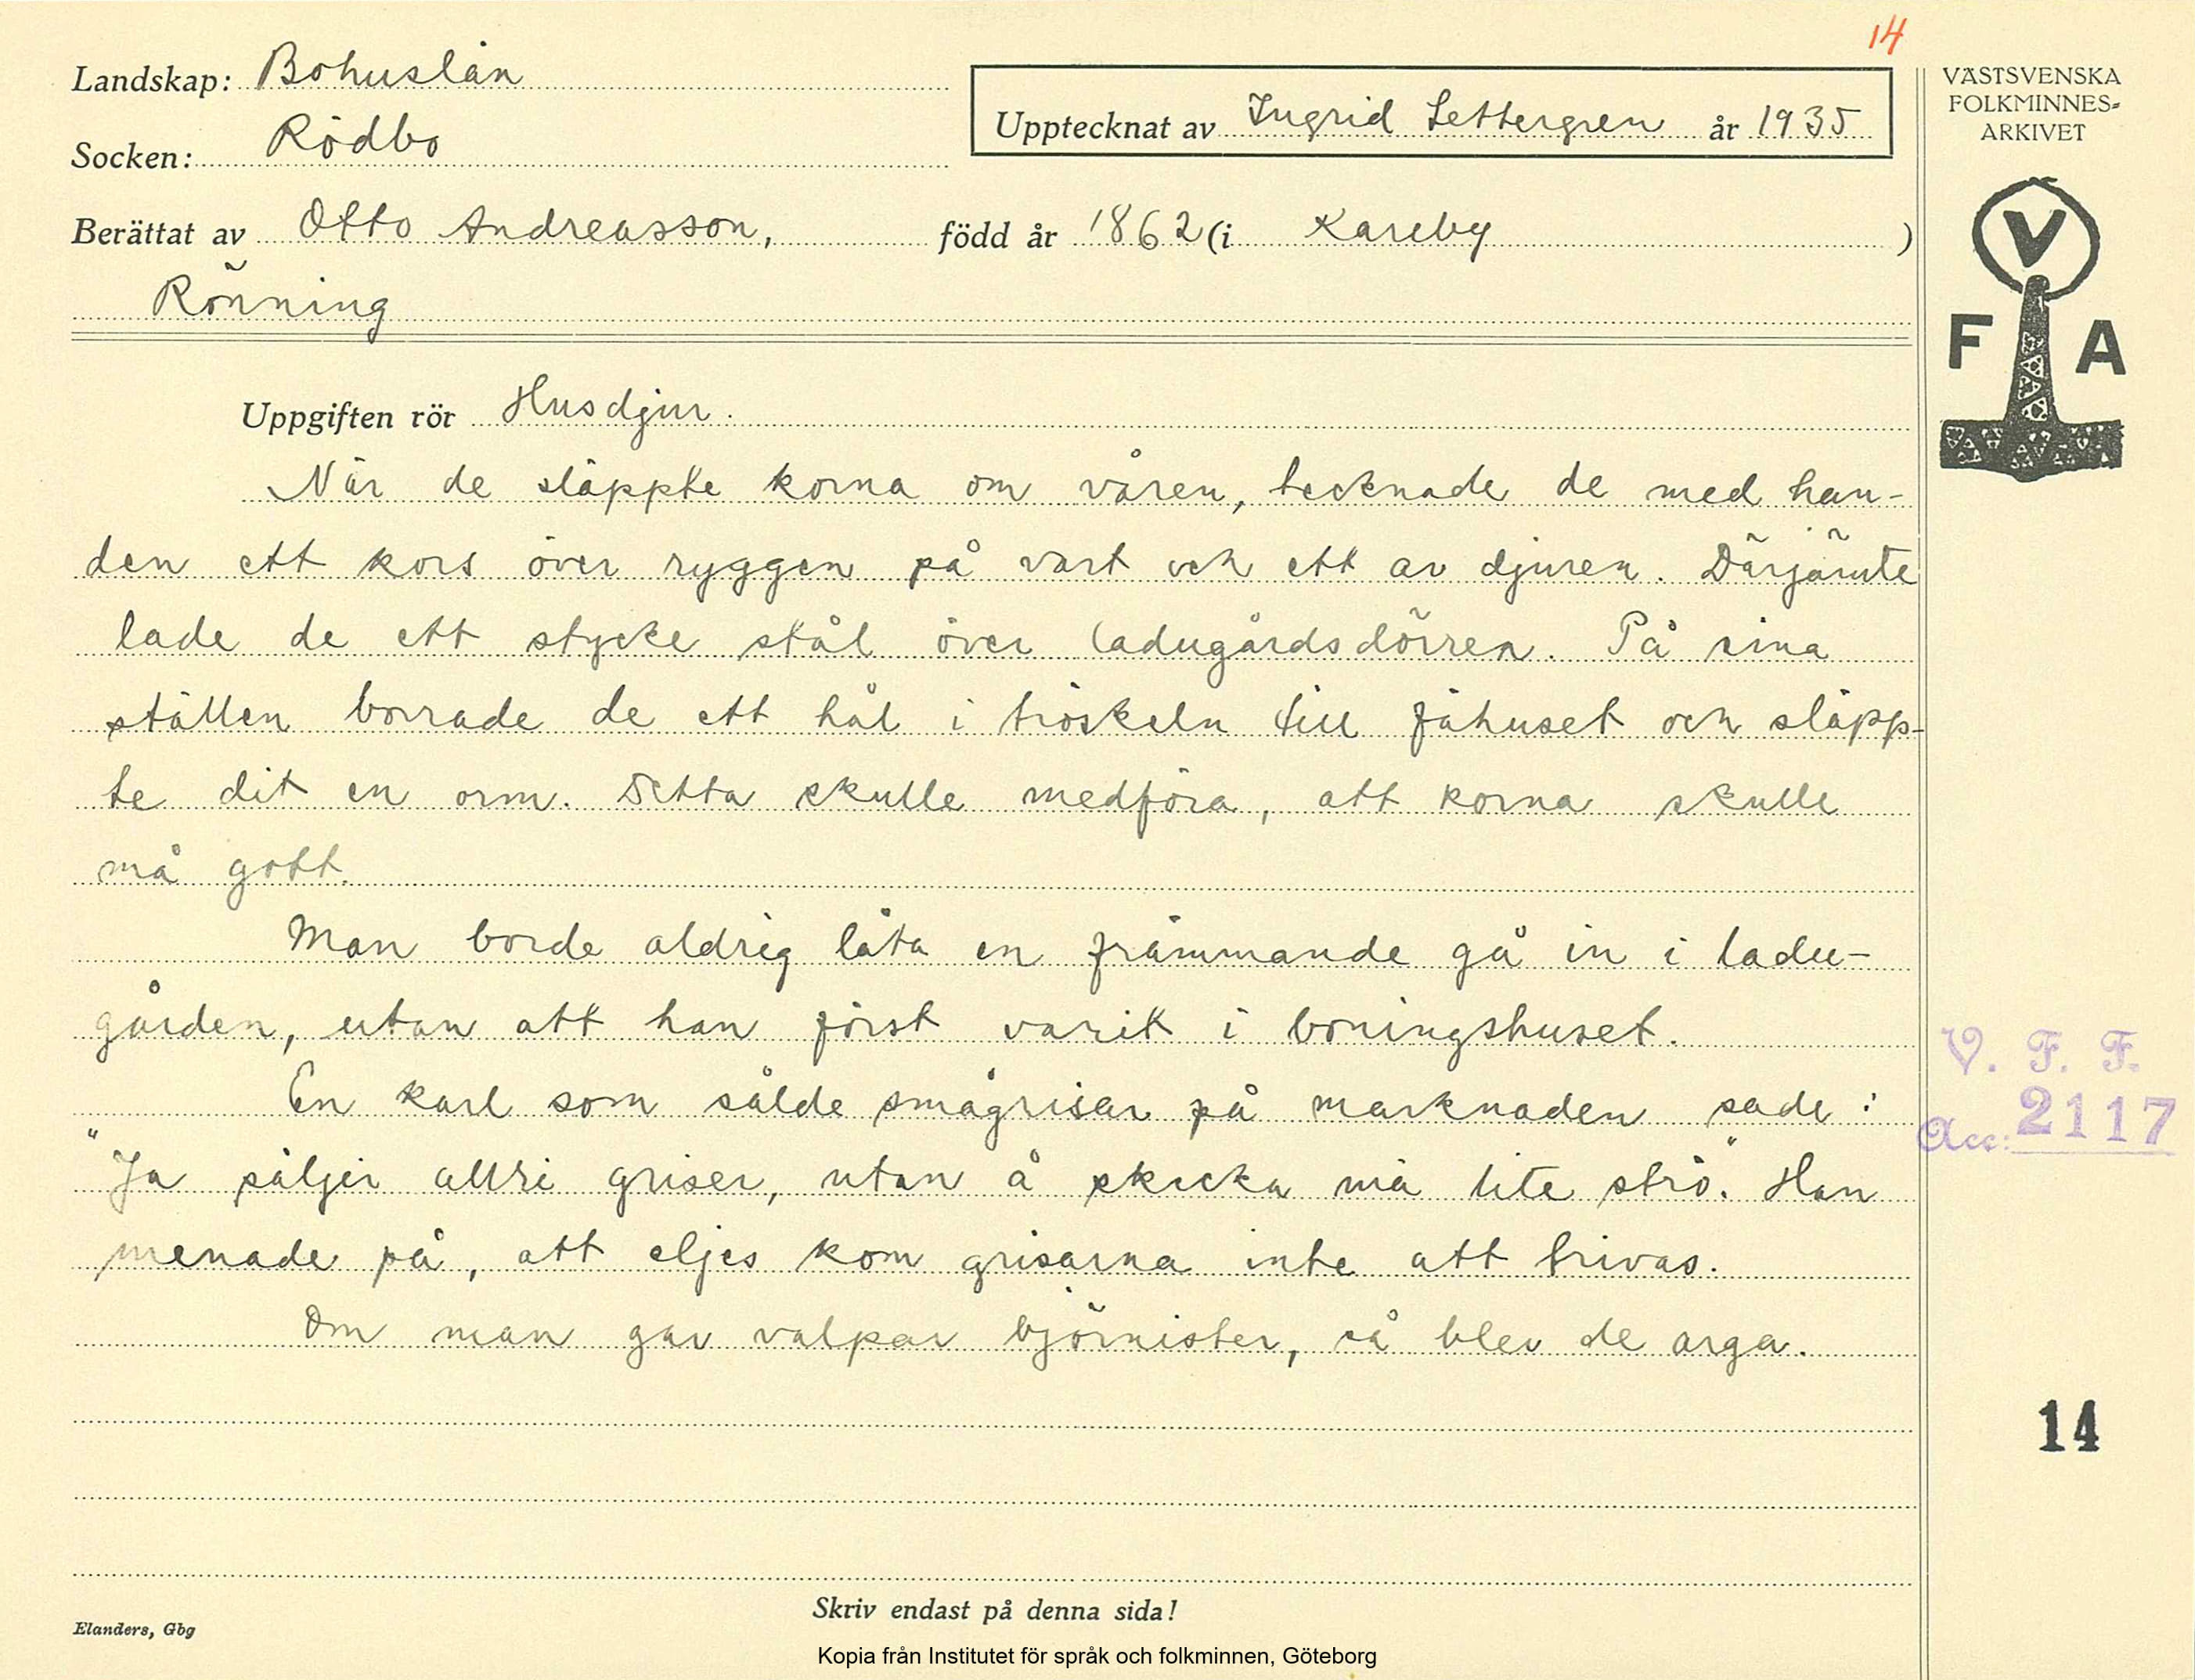 14
Landskap: Bohuslän
Socken: Rödbo
Upptecknat av Ingrid Settergren år 1935
Berättat av Otto Andreasson, född år 1862 (i Kareby)
Rönning
Uppgiften rör Husdjur.
När de släppte korna om våren, tecknade de med han-
den ett kors över ryggen på vart och ett av djuren. Därjämte
lade de ett stycke stål över ladugårdsdörren. På sina
ställen borrade de ett hål i tröskeln till fähuset och släpp-
te dit en orm. Detta skulle medföra, att korna skulle
må gott.
Man borde aldrig låta en främmande gå in i ladu-
gården, utan att han först varit i boningshuset.
En karl som sålde smågrisar på marknaden sade:
"Ja säljer alltri griser, utan å skecka mä lite strö." Han
menade på, att eljes kom grisarna inte att trivas.
Om man gav valpar björnister, så blev de arga.
Skriv endast på denna sida!
Elanders, Gbg
Kopia från Institutet för språk och folkminnen, Göteborg
VÄSTSVENSKA
FOLKMINNES-
ARKIVET
V
F A
V. F. F.
Acc: 2117
14